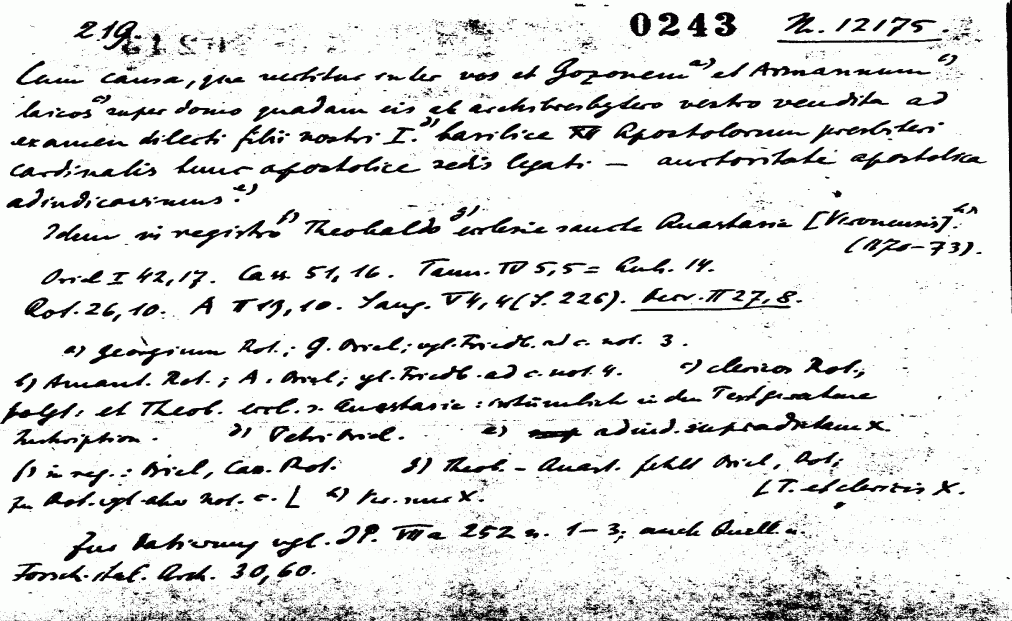 219. 0243 N. 12175.
Cum causa, que vertitur inter vos et Gozonem a) et Armannum b)
laicos c) super domo quadam eis ab archipresbytero vestro vendita ad
examen dilecti filii nostri I. d) basilice XII Apostolorum presbiteri
cardinalis tunc apostolice sedis legati — auctoritate apostolica
adiudicavimus e).
Idem in registro f) Theobaldo g) ecclesie sancte Anastasie [Veronensis]. h)
(1170-73).
Oriel I 42,17. Cass. 51,16. Tann. IV 5,5 = Rub. 14.
Rot. 26,10. A II 19,10. Sang. V 4,4 (S. 226). Berv. II 27,8.
a) Georgium Rot.; G. Oriel; vgl. Friedb. ad c. not. 3.
b) Amant. Rot.; A. Oriel; vgl. Friedb. ad c. not. 4. c) clericos Rot.;
folgt: et Theob. eccl. s. Anastasie: irrtümlich in den Text geratene
Inskription. d) Petri Oriel. e) adiud. supradictam X.
f) in reg.: Oriel, Cas. Rot. g) Theob - Anast. fehlt Oriel, Rot;
zu Rot. vgl. aber not. c. [ h) Ver. nur X. [T. et clericis X.
Zur Datierung vgl. IP. VII a 252 n. 1-3; auch Quell. u.
Forsch. ital. Arch. 30,60.